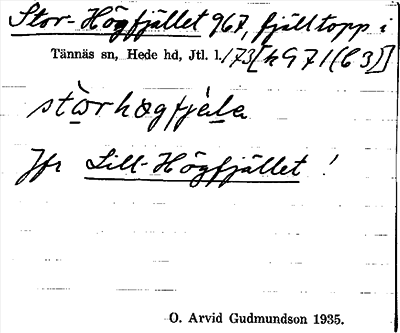 Stor-Högfjället 967, fjälltopp i
Tännäs sn, Hede hd, Jtl. l. /73[h971(63)]
stòrhøgfjæ̀la
Jfr Lill-Högfjället !
O. Arvid Gudmundson 1935.